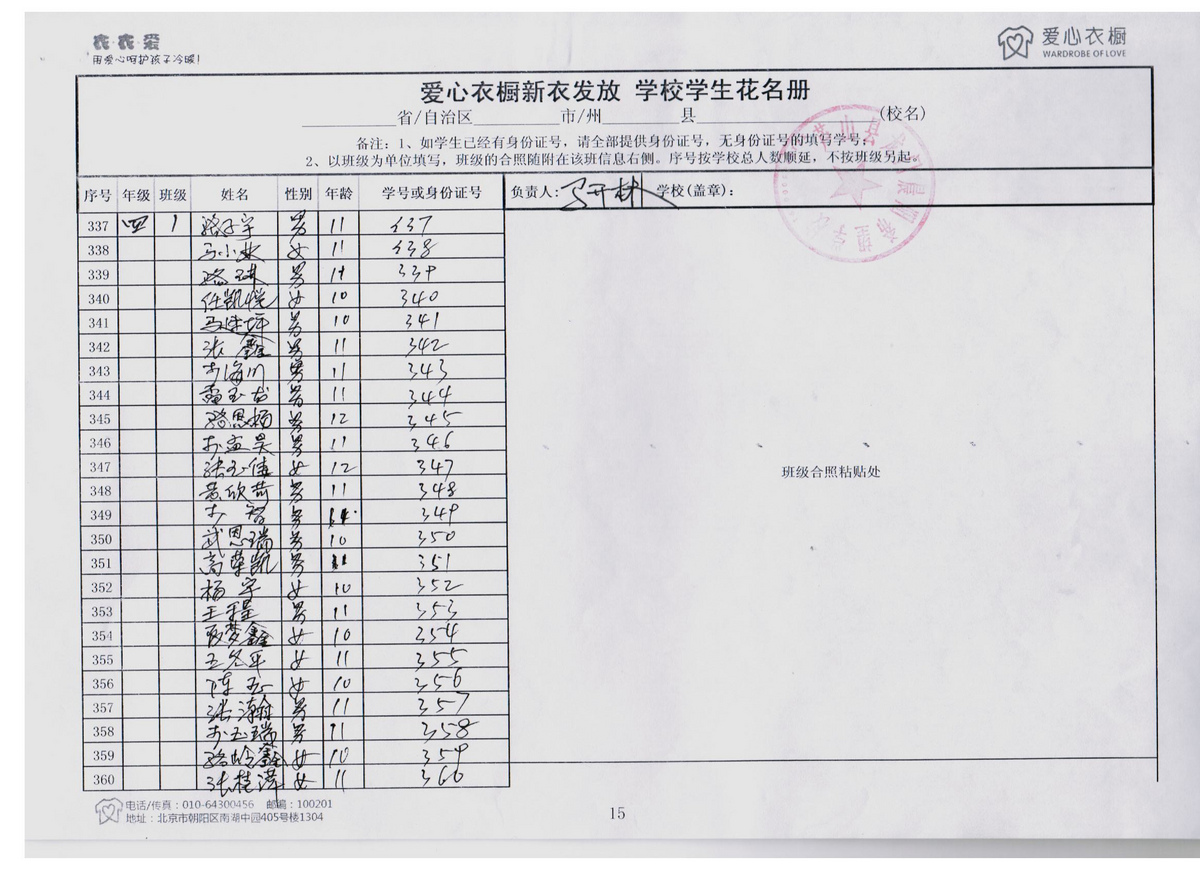 衣·衣·爱
用爱心呵护孩子冷暖!
爱心衣橱
WARDROBE OF LOVE
爱心衣橱新衣发放 学校学生花名册
省/自治区 市/州 县 (校名)
备注：1、如学生已经有身份证号，请全部提供身份证号，无身份证号的填写学号；
2、以班级为单位填写，班级的合照随附在该班信息右侧。序号按学校总人数顺延，不按班级另起。
序号 年级 班级 姓名 性别 年龄 学号或身份证号 负责人： 学校(盖章)：
337 四 1 骆子宇 男 11 337
338 马小 女 11 338
339 骆琪 男 11 339
340 任凯悦 女 10 340
341 马 坪 男 10 341
342 张鑫 男 11 342
343 海川 男 11 343
344 雷玉龙 男 11 344
345 骆思杨 男 12 345
346 孟昊 男 11 346
347 张玉倩 女 12 347
348 黄欣荷 男 11 348
349 智 男 349
350 武恩瑞 男 10 350
351 高荣凯 男 11 351
352 杨宇 女 10 352
353 王程 男 11 353
354 梦鑫 女 10 354
355 王冬平 女 11 355
356 陈 女 10 356
357 张瀚 男 11 357
358 玉瑞 男 11 358
359 骆 鑫 女 10 359
360 张桂萍 女 11 360
班级合照粘贴处
电话/传真：010-64300456 邮编：100201
地址：北京市朝阳区南湖中园405号楼1304
15